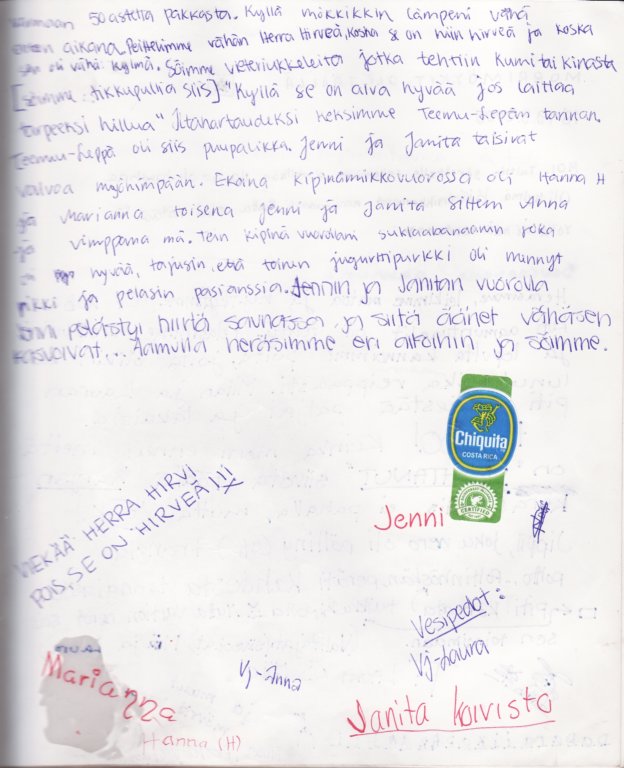 50 astetta pakkasta. Kyllä mökkikkin lämpeni vähä
aikana. Peittelimme vähän Herra Hirveä, koska se on niin hirveä ja koska
sen oli vähä kylmä. Söimme veteriukkeleita jotka tehtiin kumitaikinasta
[söimme tikkupullia siis] "Kyllä se on aiva hyvää jos laittaa
tarpeeksi hillua" Iltahartaudeksi keksimme Teemu-Lepän tarinan.
Teemu-Leppä oli siis puupalikka. Jenni ja Janita taisivat
valvoa myöhimpään. Ekaina kipinämikkovuorossa oli Hanna H
ja Marianna toisena Jenni ja Janita sittem Anna
ja vimppana mä. Tein kipinä vuorollani suklaabanaanin joka
oli hyvää, tajusin, että toinen jugurttipurkki oli mennyt
rikki ja pelasin pasianssia. Jennin ja Janitan vuorolla
pelästyi hiirtä saunassa ja siitä äänet vähäsen
kasvoivat... Aamulla heräsimme eri aikoihin ja söimme.
Chiquita
COSTA RICA
CERTIFIED
Jenni
VIEKÄÄ HERRA HIRVI
POIS, SE ON HIRVEÄ!!!
Vesipedot:
Vj-Laura
Vj-Anna
Marianna
Hanna (H)
Janita Koivisto